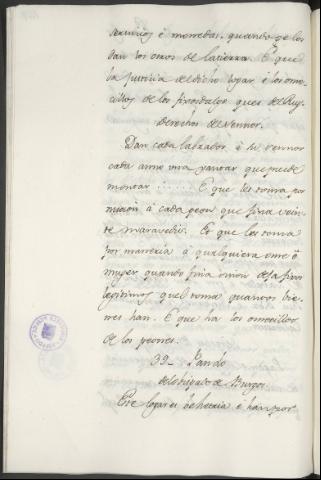 servicios é monedas, quando ge los
dan los otros de la tierra. E que
la justicia del dicho logar é los ome-
cillos de los fijosdalgo ques del Rey.
Derechos del Sennor.
Dan cada labrador á su sennor
cada anno una yantar que puede
montar ...... E que les toma por
micion á cada peon que fina vein-
te maravedis. Et que les toma
por mannería á qualquiera ome ó
muger, quando fina é non deja fijos
legítimos quel toma quantos bie-
nes han. E que ha los omecillos
de los peones.
39 - Pando
del obispado de Burgos
Este logar es behetria é han por